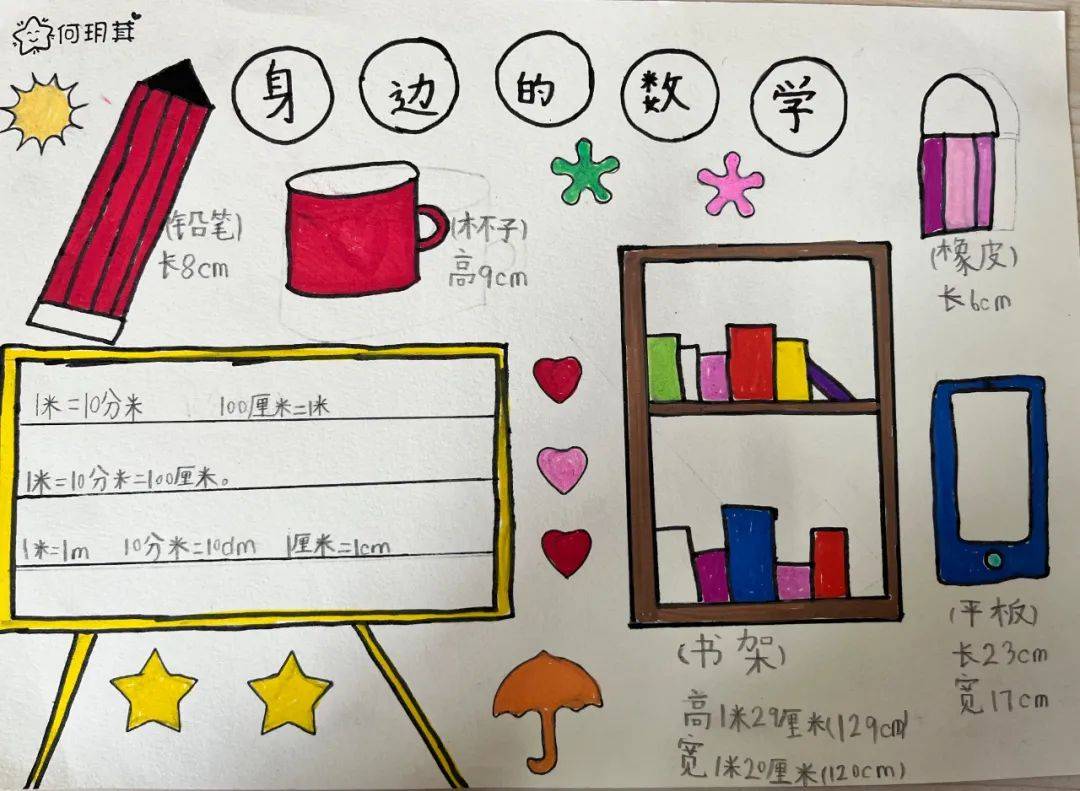 何玥茸
身边的数学
(铅笔)
长8cm
(杯子)
高9cm
(橡皮)
长6cm
1米=10分米 100厘米=1米
1米=10分米=100厘米。
1米=1m 10分米=10dm 1厘米=1cm
(书架)
高1米29厘米(129cm)
宽1米20厘米(120cm)
(平板)
长23cm
宽17cm